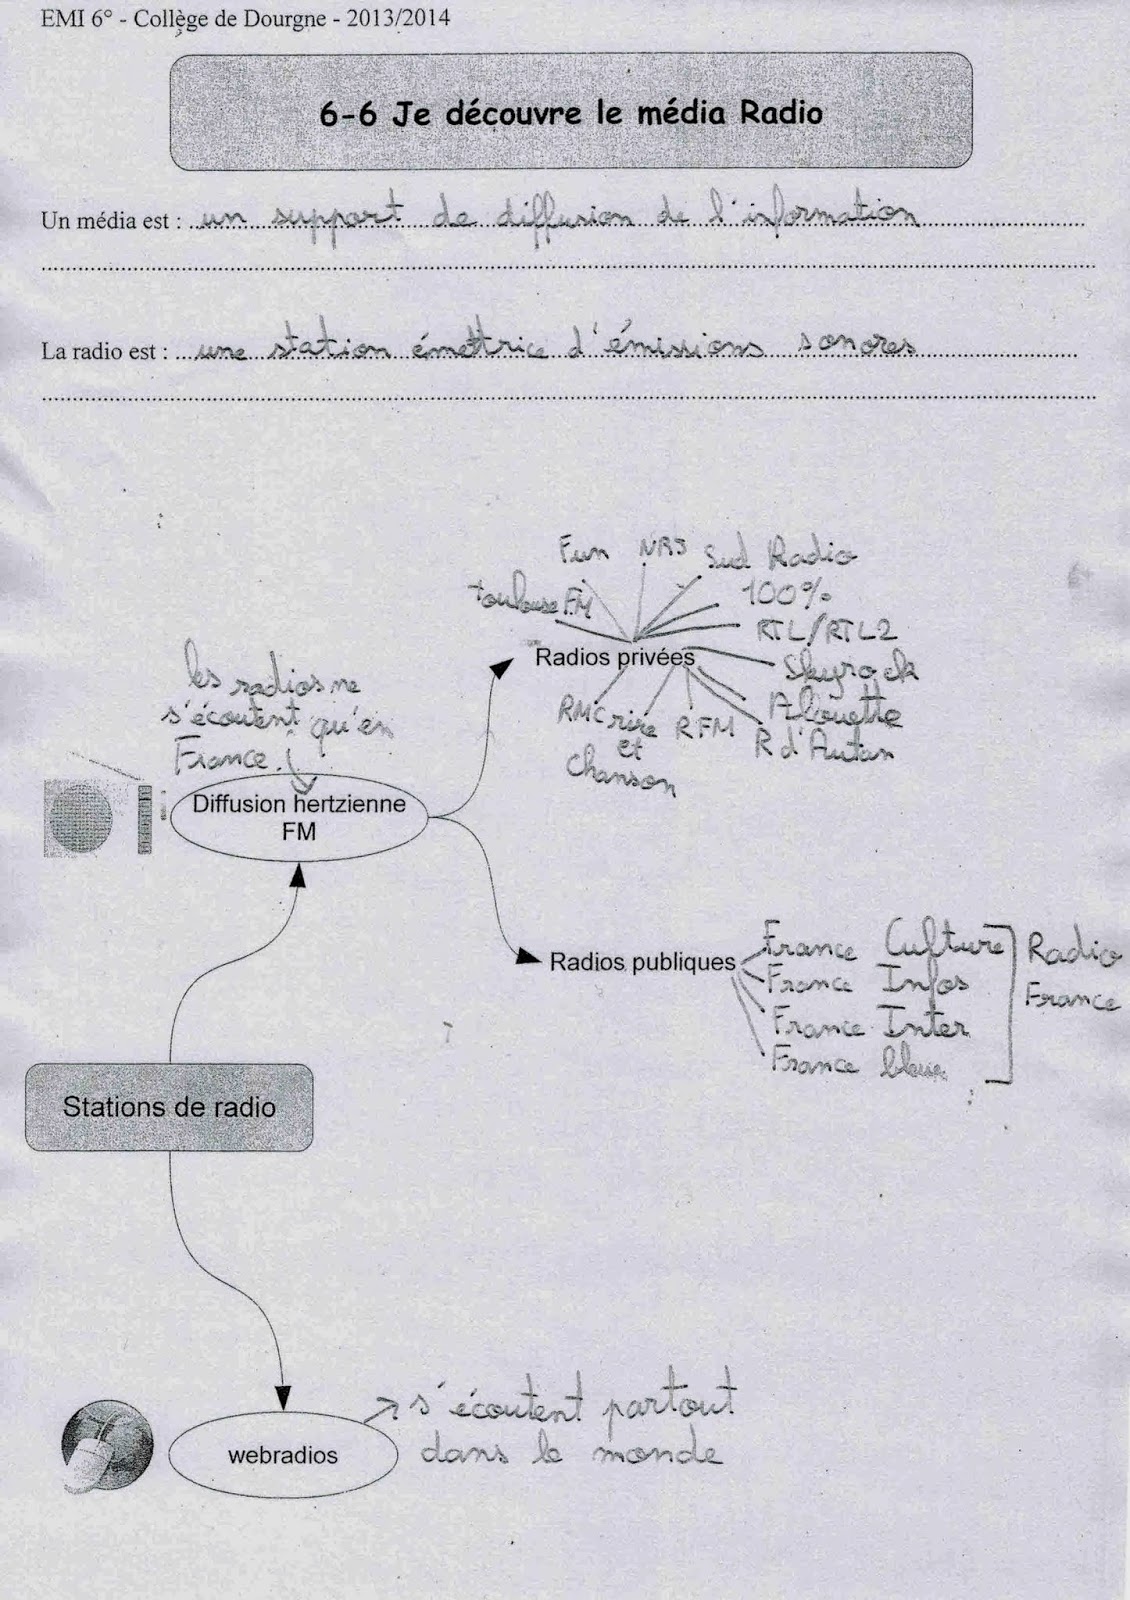 EMI 6° - Collège de Dourgne - 2013/2014
6-6 Je découvre le média Radio
Un média est : un support de diffusion de l'information
La radio est : une station émettrice d'émissions sonores
Fun NRJ Sud Radio
toulouse FM 100%
RTL/RTL2
Radios privées
Skyrock
Alouette
RMC rire et chanson RFM R d'Autan
les radios ne
s'écoutent qu'en
France.
Diffusion hertzienne
FM
Radios publiques
France Culture
France Infos
France Inter
France bleue
Radio
France
Stations de radio
webradios
s'écoutent partout
dans le monde